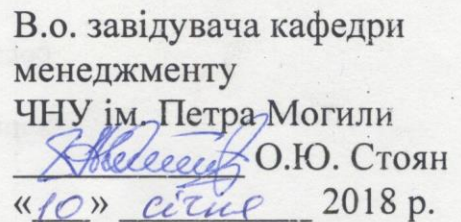 В.о. завідувача кафедри
менеджменту
ЧНУ ім. Петра Могили
О.Ю. Стоян
«10» січня 2018 р.